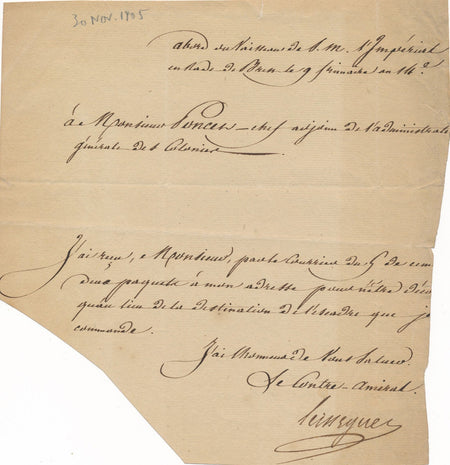 30 NOV. 1905
abord du Vaisseau de S. M. l'Impérial
en Rade de Brest le 9 frimaire an 14.
à Monsieur Poncet chef adjoint de l'administrat
générale des Colonies
J'ai reçu, Monsieur, par le Courrier du 5 de ce m
deux paquets à mon adresse pour n'être déca
qu'au lieu de la destination de l'escadre que je
commande.
J'ai l'honneur de Vous Saluer.
Le Contre-amiral.